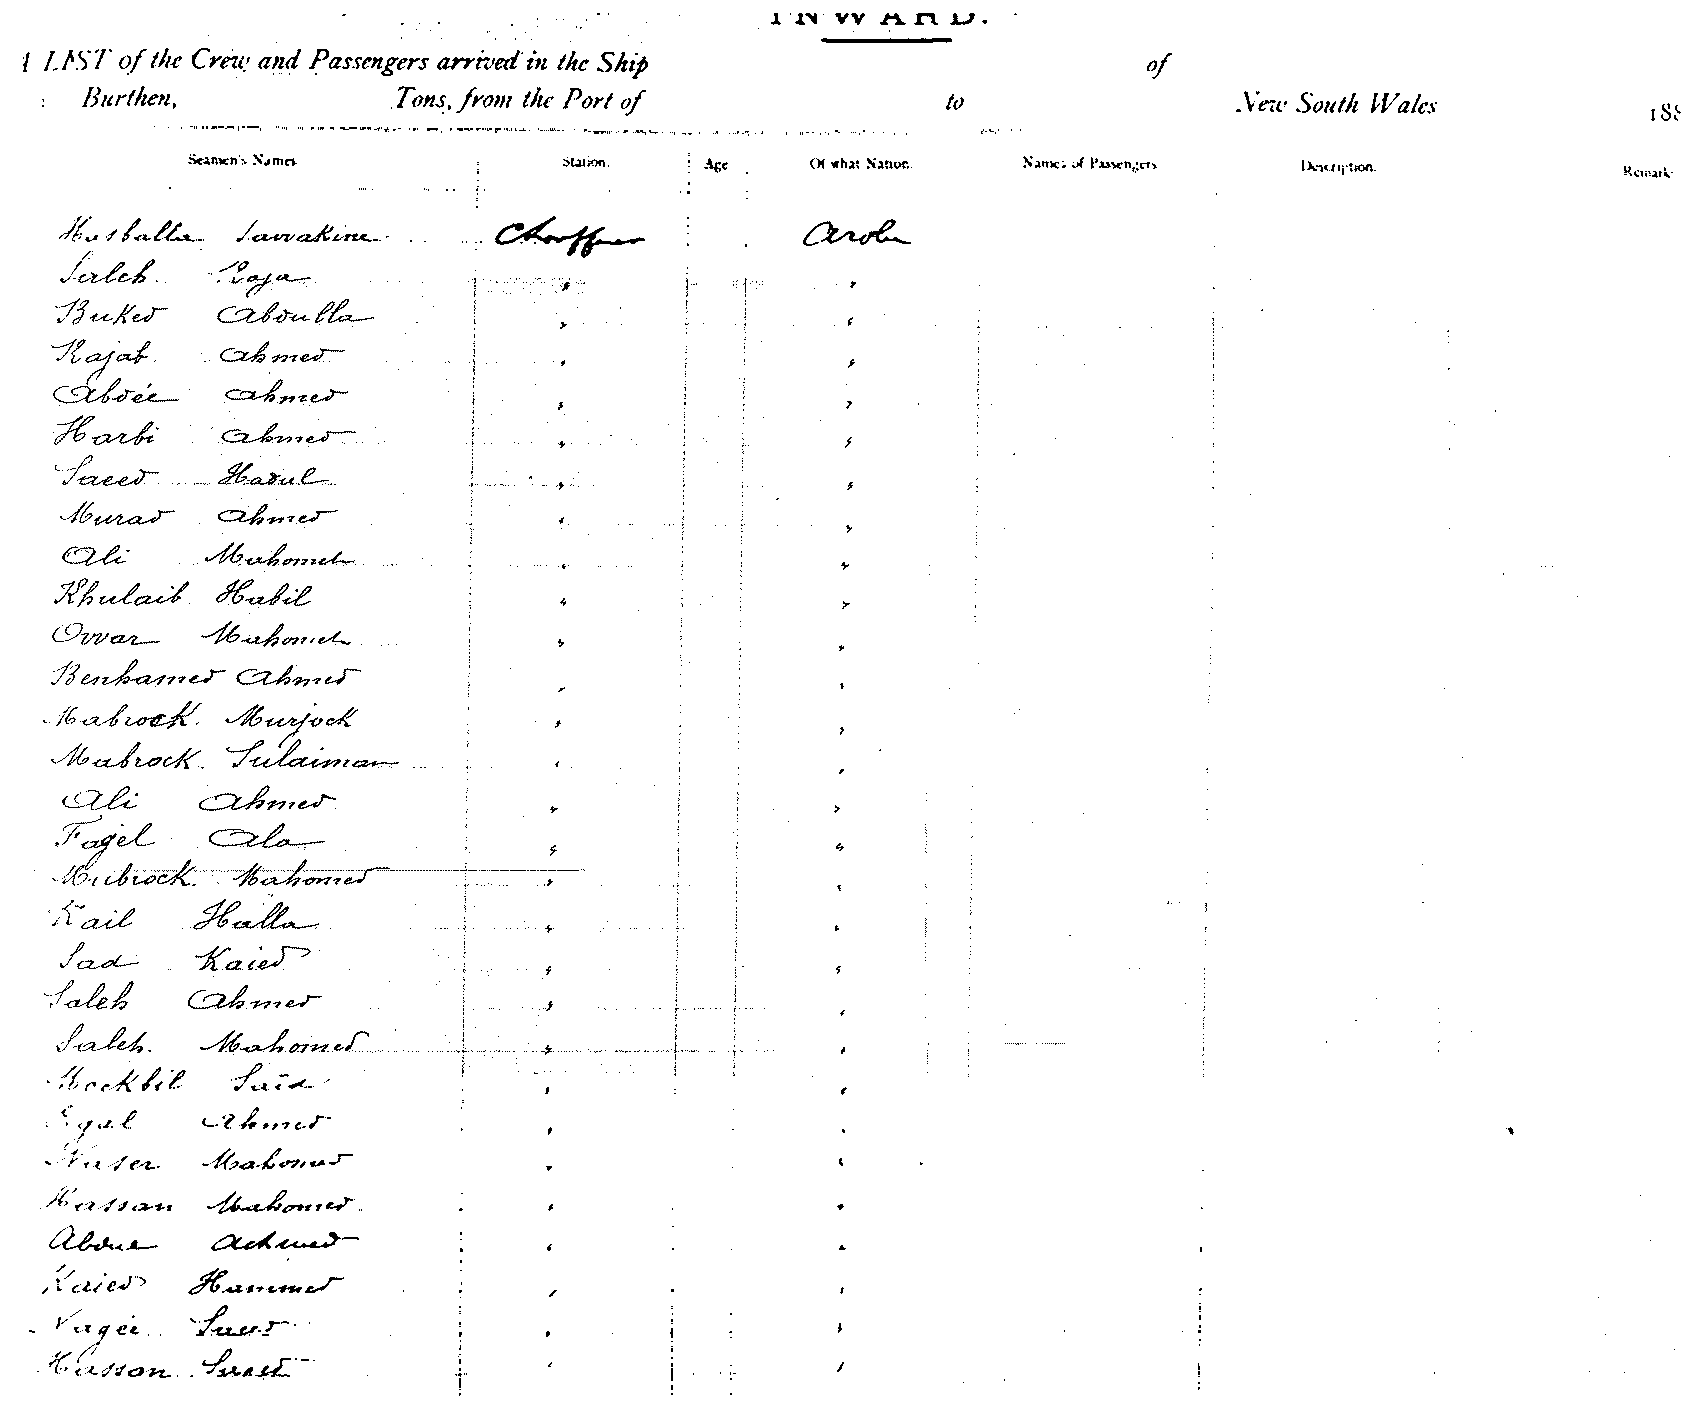 INWARD.
A LIST of the Crew and Passengers arrived in the Ship of
Burthen, Tons, from the Port of to New South Wales 188
Seamen's Names Station. Age Of what Nation. Names of Passengers Description. Remark
Hasballa Savvakine Chauffeur Arab
Saleh Raja " "
Buked Abdulla " "
Rajab Ahmed " "
Abdée Ahmed " "
Harbi Ahmed " "
Saeed Hadul " "
Murad Ahmed " "
Ali Mahomet " "
Khulaib Habil " "
Ovvar Mahomet " "
Benhamed Ahmed " "
Mabrock Murjock " "
Mabrock Sulaiman " "
Ali Ahmed " "
Fagel Ala " "
Mubrock Mahomed " "
Kail Halla " "
Sad Kaied " "
Saleh Ahmed " "
Saleh Mahomed " "
Mockbil Said " "
Egal Ahmed " "
Naser Mahomed " "
Hassan Mahomed " "
Abdue Achmed " "
Kaied Hammed " "
Nagei Saeed " "
Hasson Saeed " "